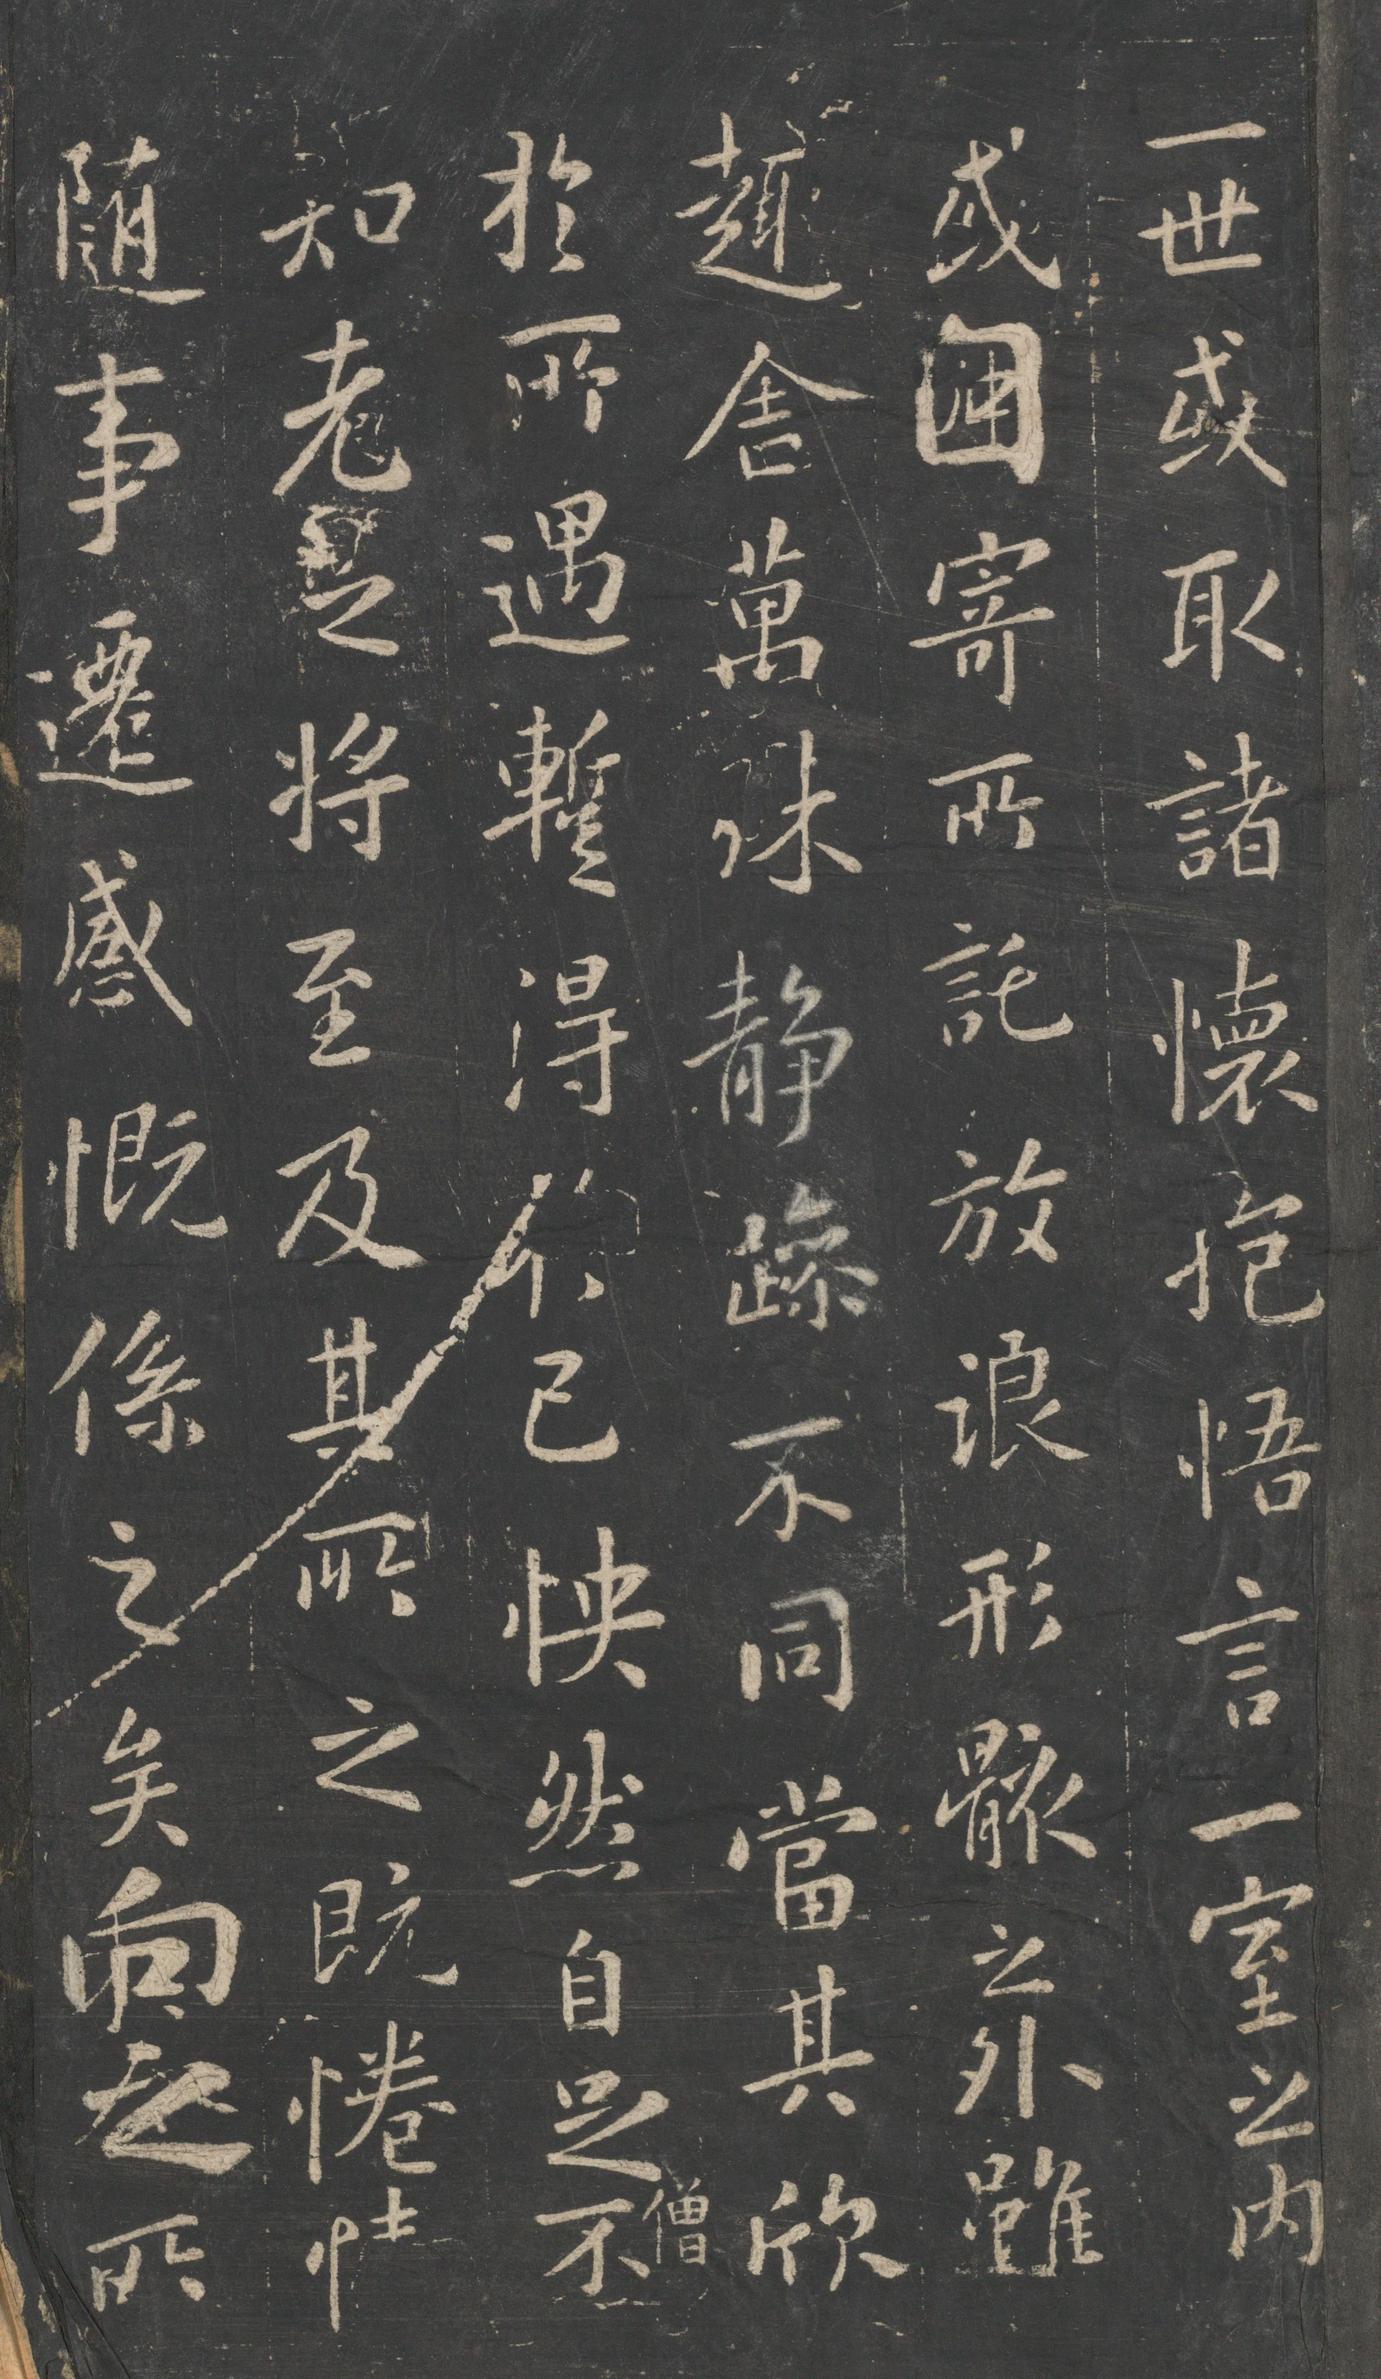 一世或取諸懷抱悟言一室之内
或因寄所託放浪形骸之外雖
趣舍萬殊静躁不同當其欣
於所遇暫得於己怏然自足不
僧
知老之将至及其所之既惓情
随事遷感慨係之矣向之所